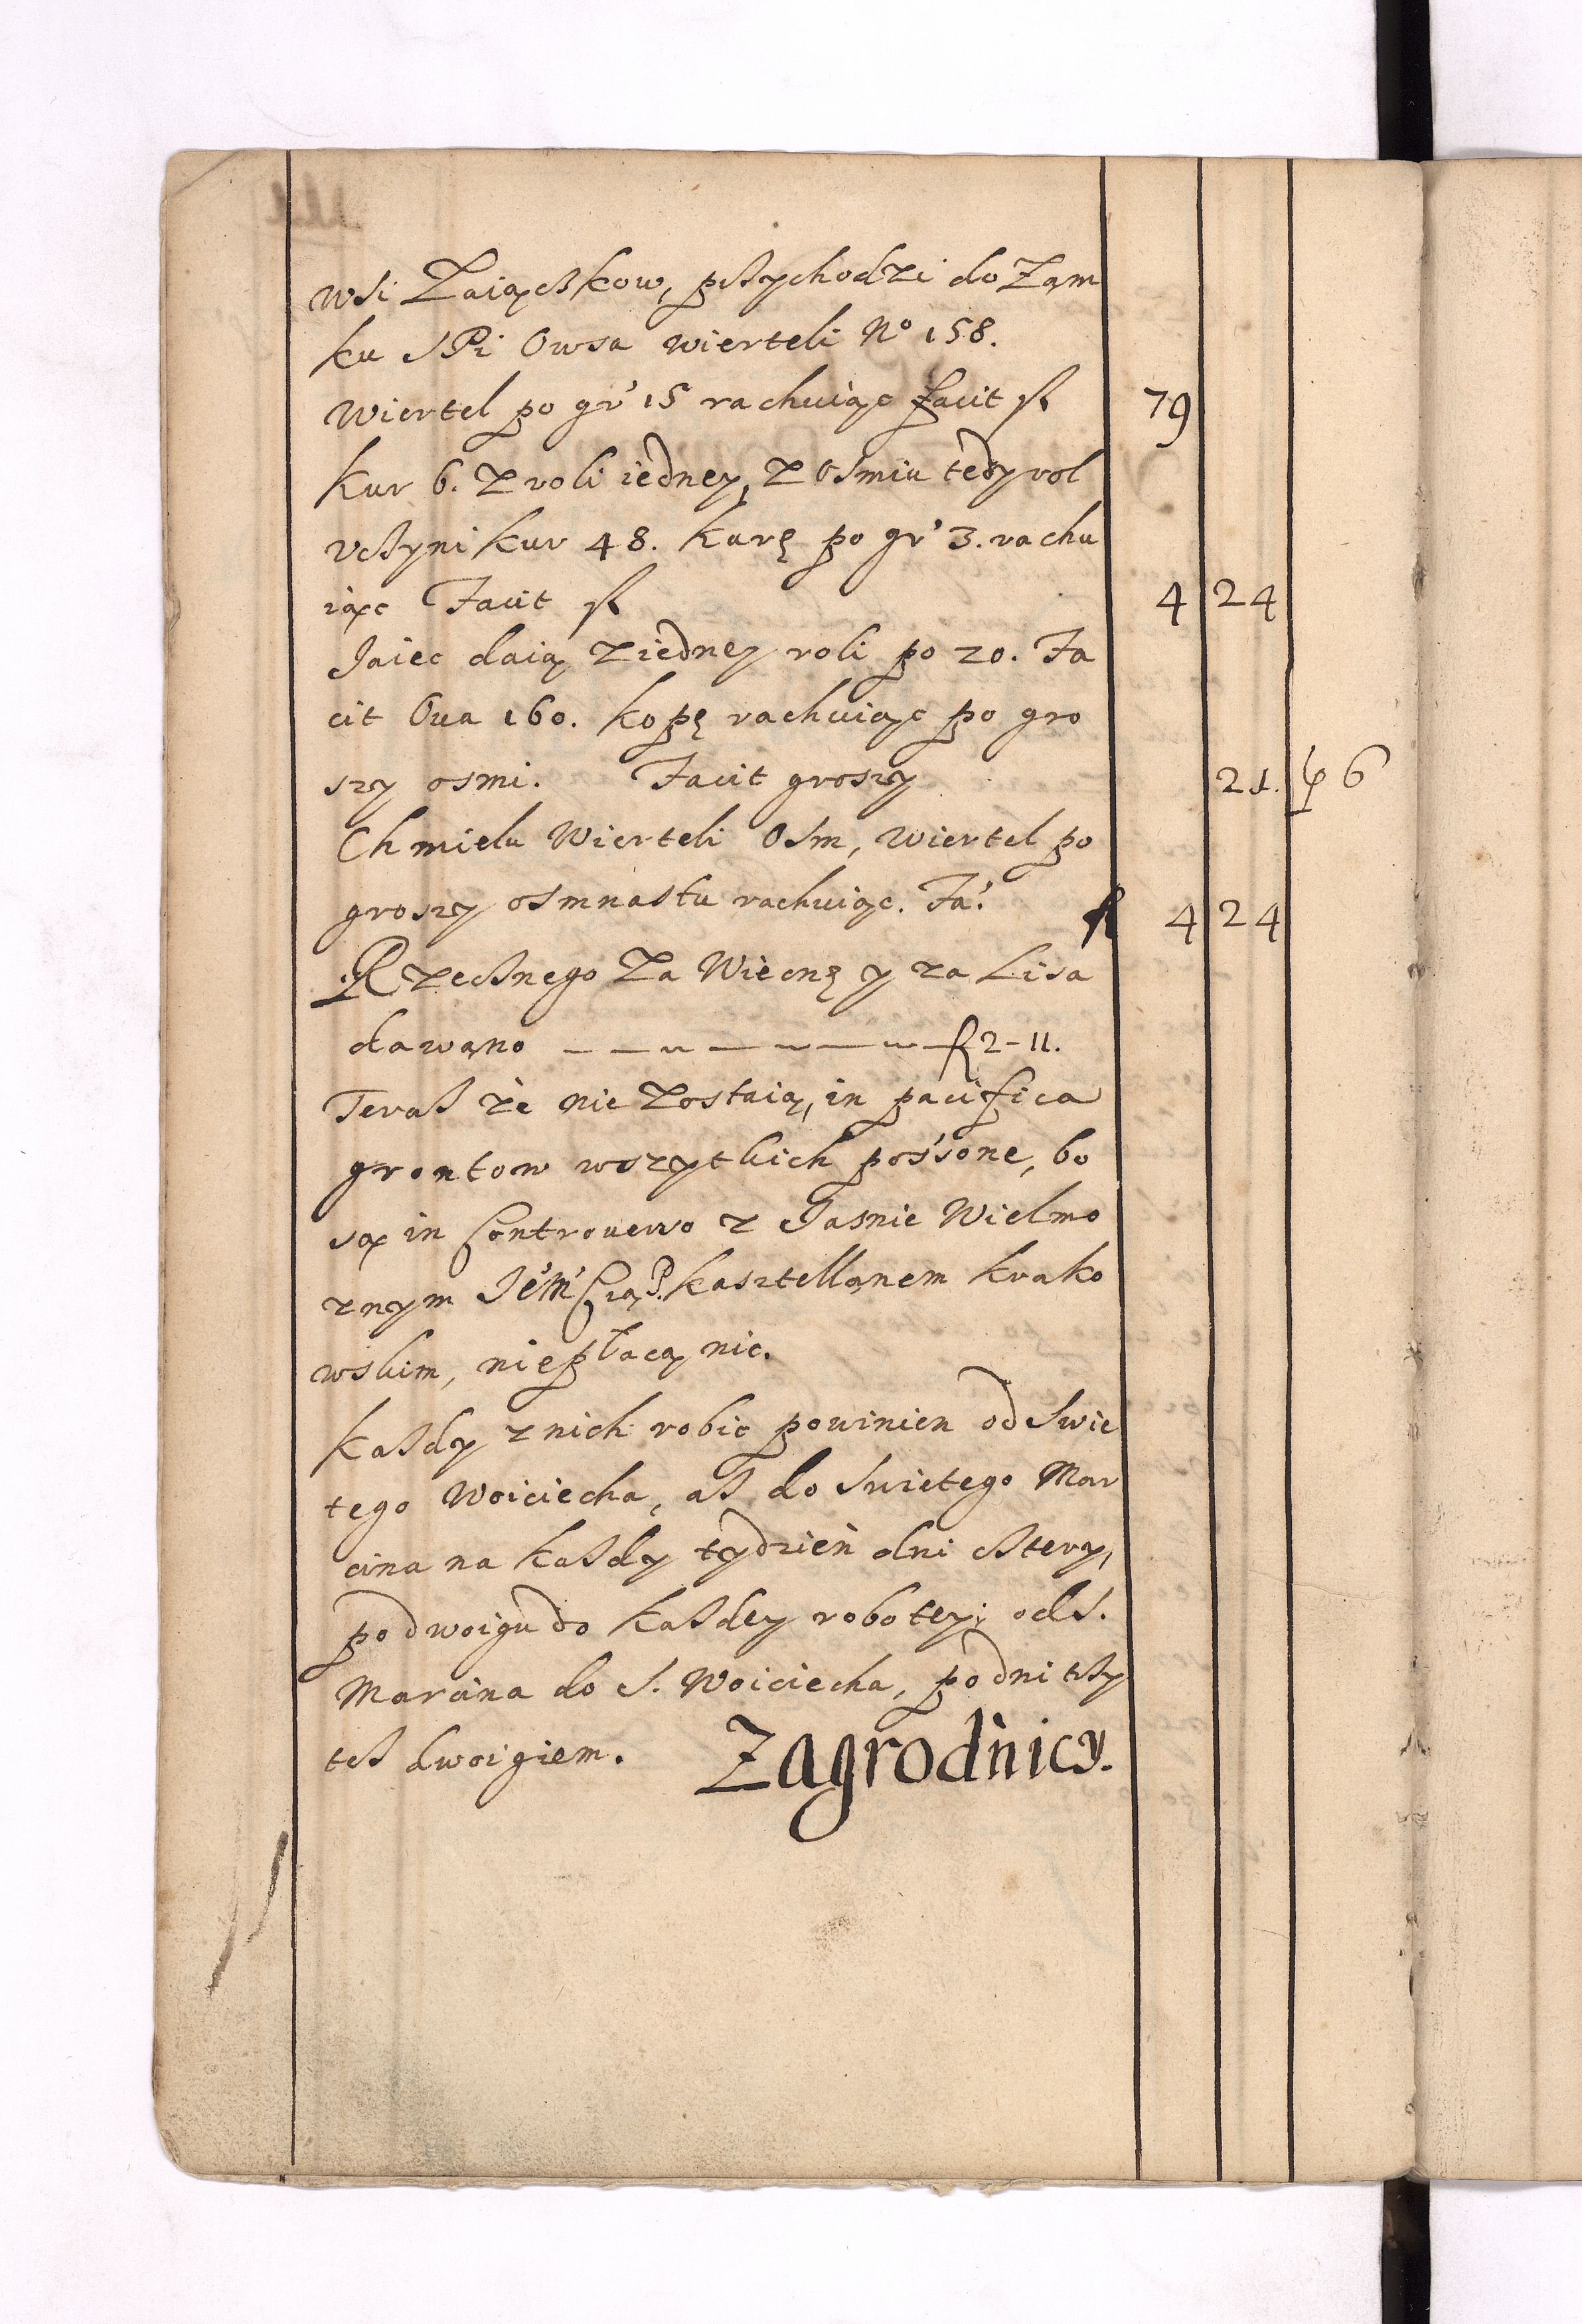 Wsi Zaiączkow, pszychodzi do Zam
ku SPi Owsa wierteli No 158.
Wiertel po gr' 15 rachuiąc facit fl 79
Kur 6. z roli iedney, z osmiu tedy rol
vczyni Kur 48. Kurę po gr' 3. rachu
iąc Facit fl 4 24
Jaiec daią z iedney roli po 20. Fa
cit Oua 160. kopę rachuiąc po gro
szy osmi. Facit groszy 21. 6
Chmielu Wierteli Osm, wiertel po
groszy osmnastu rachuiąc. Fa: fl 4 24
Rzecznego Za Wiecnę y za Lisa
dawano — — — — — — — fl 2-11.
Teraz że nie Zostaią, in pacifica
grontow wszytkich pos'sone, bo
są in Controuerso z Jasnie Wielmo
znym Je'm' P. Kasztellanem krako
wskim, niepłacą nic.
Kazdy z nich robic powinien od Swie
tego Woiciecha, asz do Swietego Mar
cina na kaszdy tydzień dni cztery,
po dwoigu do kaszdey robotey; od S.
Marcina do S. Woiciecha, po dni tszy
tesz dwoigiem. Zagrodnicy.